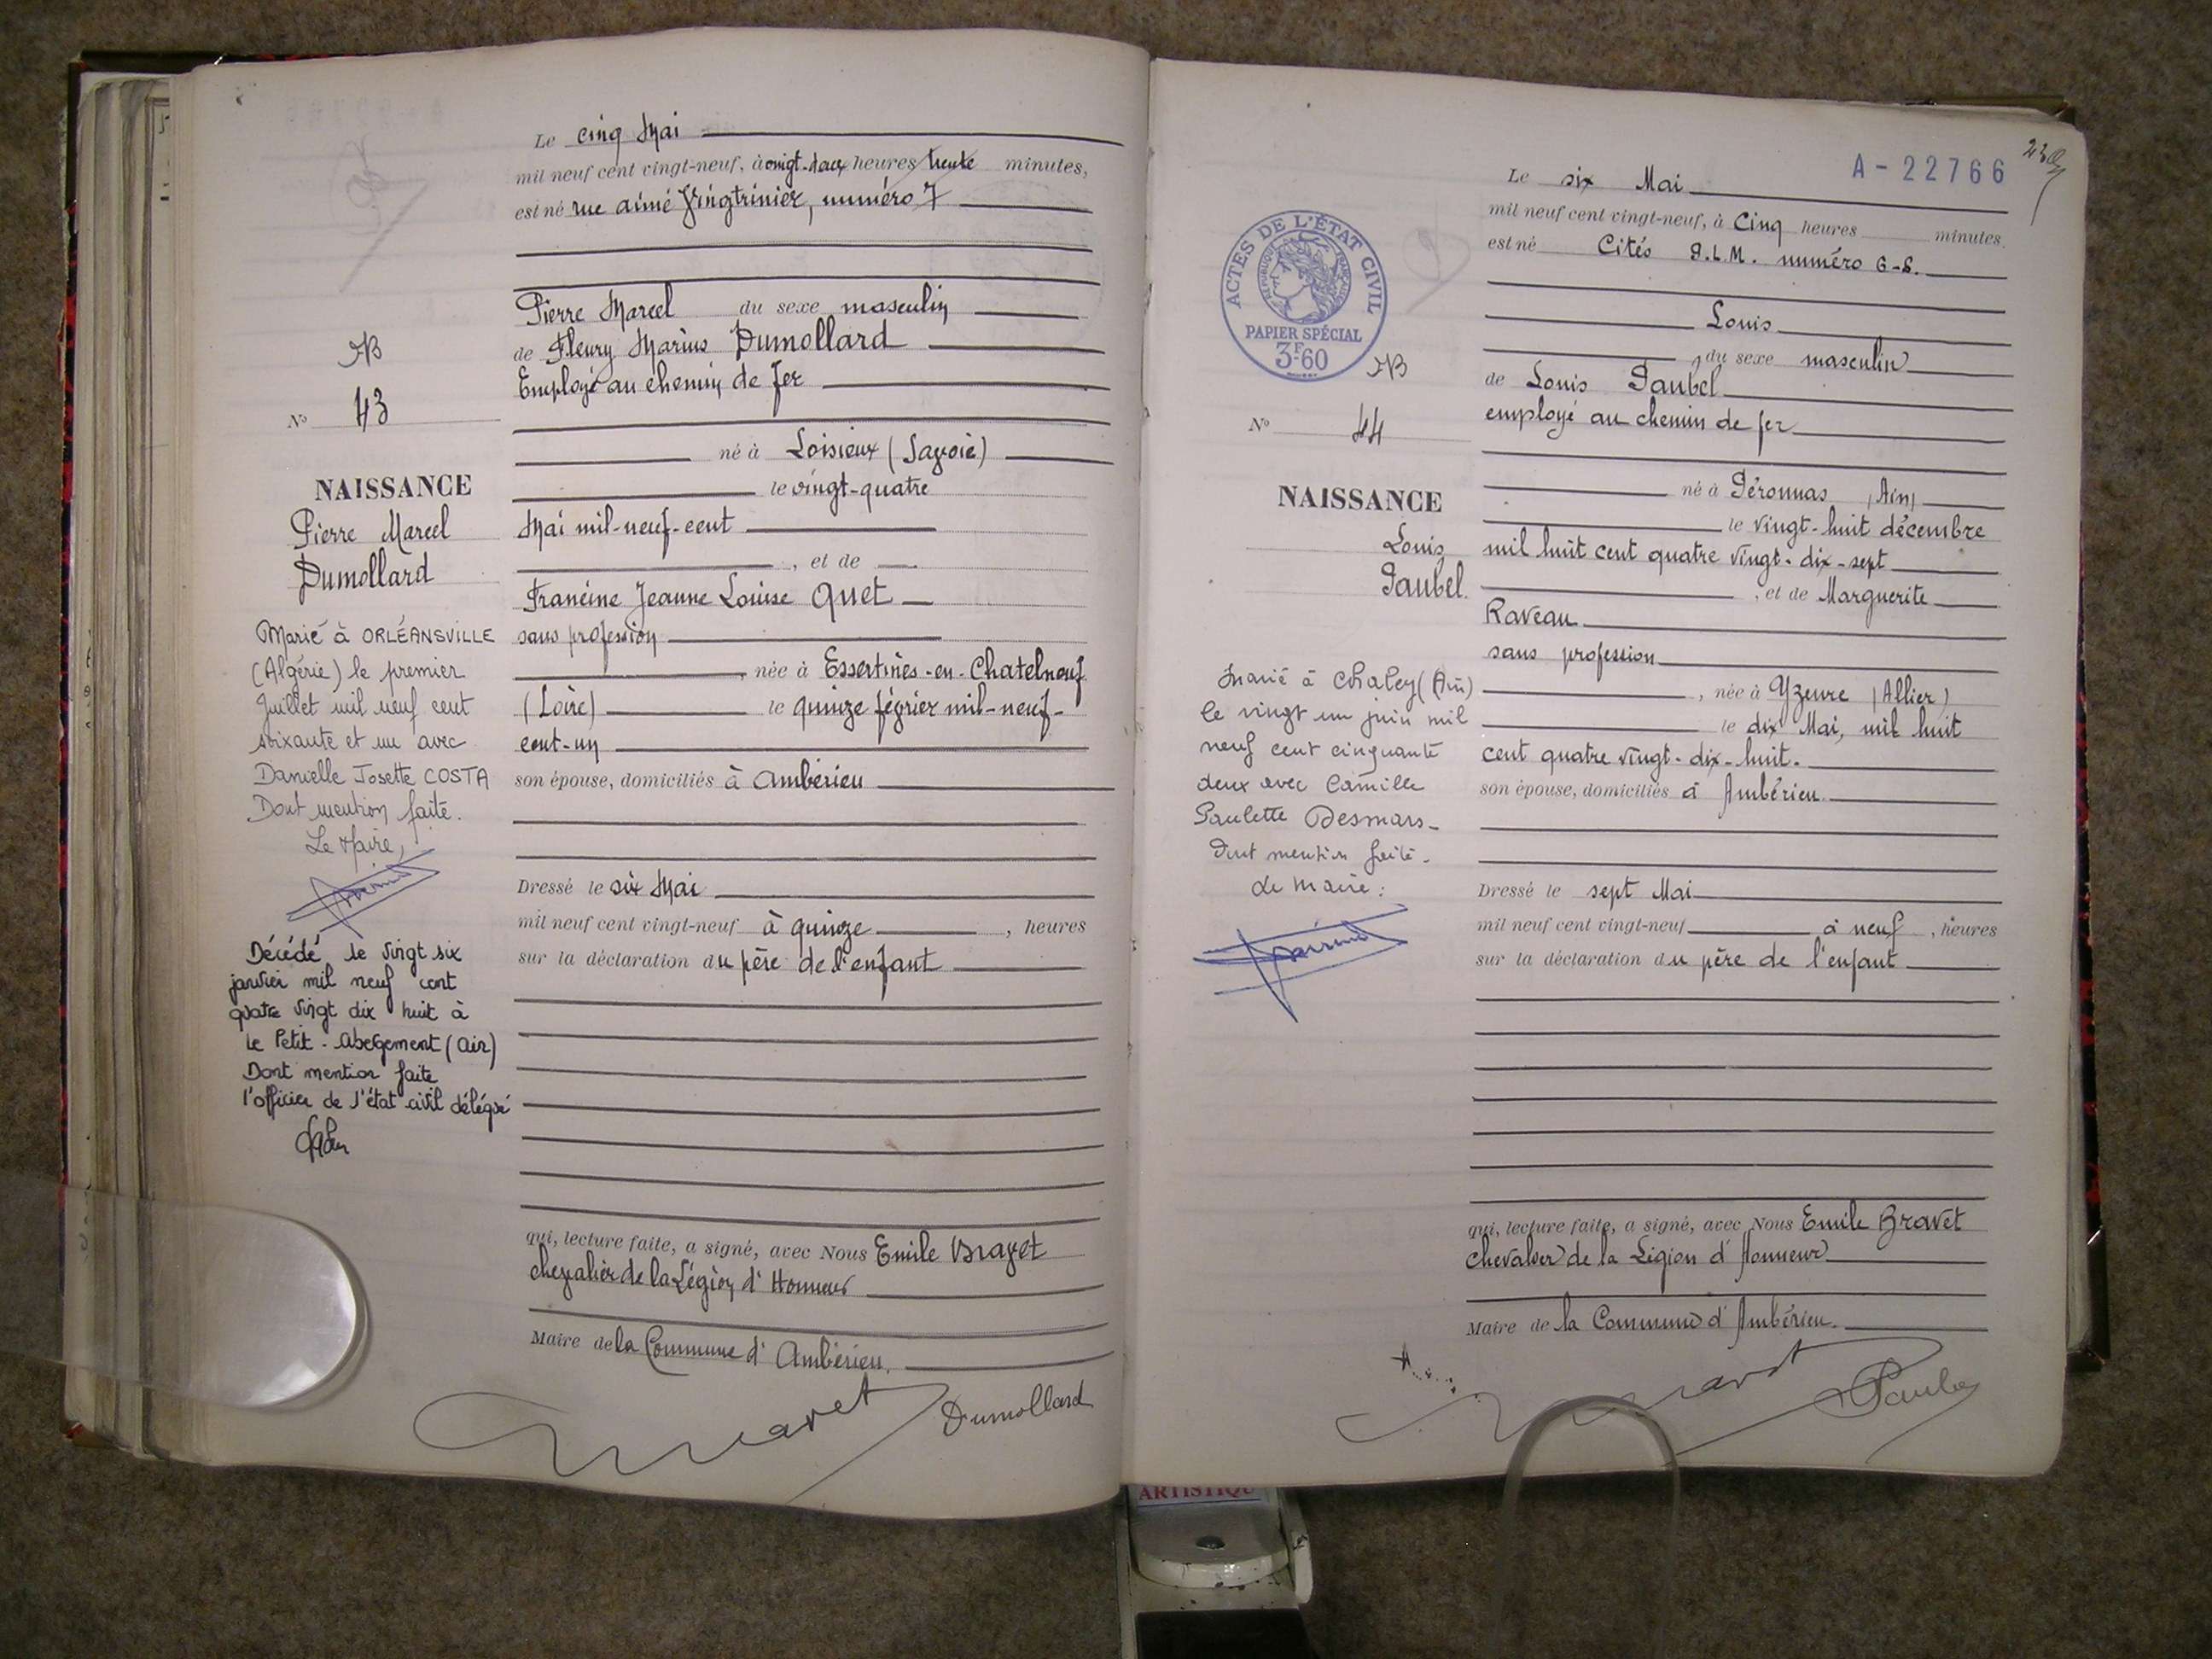 Le cinq Mai
mil neuf cent vingt-neuf, à vingt-deux heures trente minutes,
est né rue aimé Vingtrinier, numéro 7
Pierre Marcel du sexe masculin
de Fleury Marius Dumollard
Employé au chemin de fer
né à Loisieux (Savoie)
le vingt-quatre
Mai mil-neuf-cent
, et de
Francine Jeanne Louise Quet
sans profession
, née à Essertines-en-Chatelneuf
(Loire) le quinze février mil-neuf-
cent-un
son épouse, domiciliés à Ambérieu
Dressé le six Mai
mil neuf cent vingt-neuf à quinze , heures
sur la déclaration du père de l'enfant
qui, lecture faite, a signé, avec Nous Emile Bravet
chevalier de la Légion d'Honneur
Maire de la Commune d'Ambérieu.
Bravet
Dumollard
N° 43
NAISSANCE
Pierre Marcel
Dumollard
Marié à ORLÉANSVILLE
(Algérie) le premier
Juillet mil neuf cent
soixante et un avec
Danielle Josette COSTA
Dont mention faite.
Le Maire,
Décédé le vingt six
janvier mil neuf cent
quatre vingt dix huit à
Le Petit-Abergement (Ain)
Dont mention faite
l'officier de l'état civil délégué
A-22766
Le six Mai
mil neuf cent vingt-neuf, à Cinq heures minutes.
est né Cités P.L.M. numéro 6-S.
Louis
, du sexe masculin
de Louis Paubel
employé au chemin de fer
né à Péronnas (Ain)
le vingt-huit décembre
mil huit cent quatre vingt-dix-sept
, et de Marguerite
Raveau
sans profession
, née à Yzeure (Allier)
le dix Mai, mil huit
cent quatre vingt-dix-huit.
son épouse, domiciliés à Ambérieu.
Dressé le sept Mai
mil neuf cent vingt-neuf à neuf , heures
sur la déclaration du père de l'enfant
qui, lecture faite, a signé, avec Nous Emile Bravet
chevalier de la Légion d'Honneur
Maire de la Commune d'Ambérieu.
Bravet
ACTES DE L'ÉTAT CIVIL
RÉPUBLIQUE FRANÇAISE
PAPIER SPÉCIAL
3F60
N° 44
NAISSANCE
Louis
Paubel.
Marié à Chaley (Ain)
le vingt un juin mil
neuf cent cinquante
deux avec Camille
Paulette Desmars-
Dont mention faite-
Le Maire:
ARTISTIQU